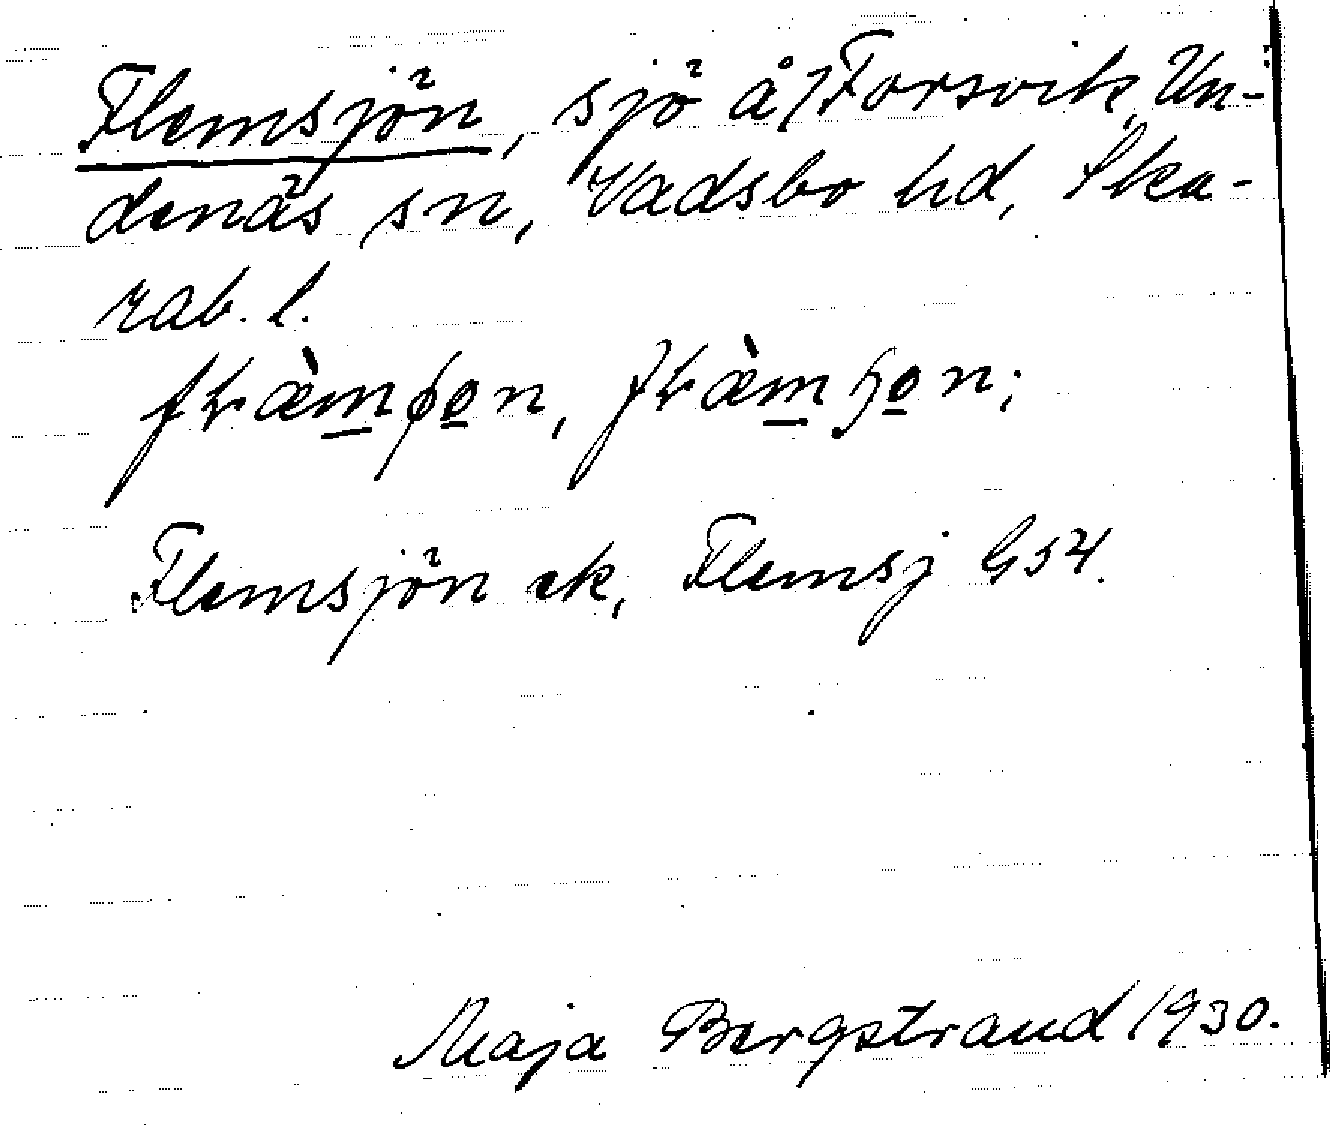 Flemsjön, sjö å Forsvik, Un-
denäs sn, Vadsbo hd, Ska-
rab. l.
Flemsjön ek, Flemsj G54.
Maja Bergstrand 1930.